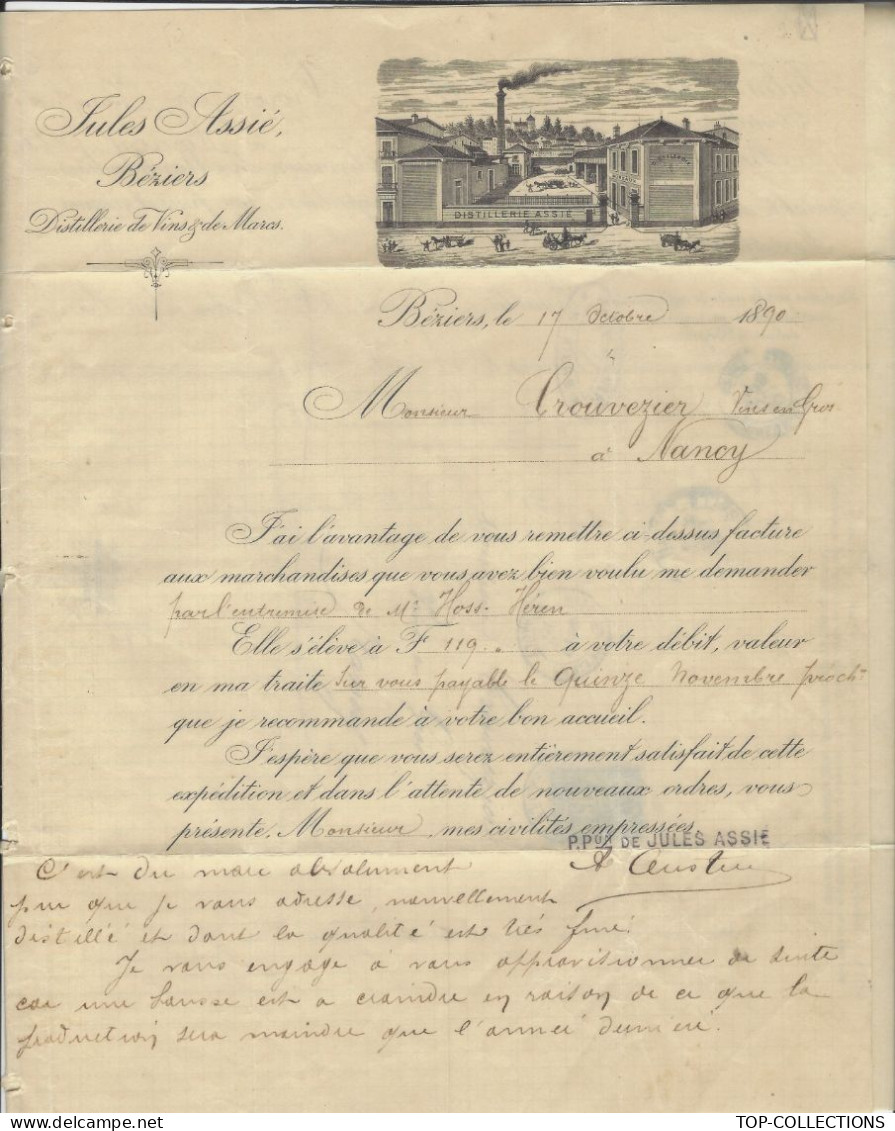 Jules Assié,
Béziers
Distillerie de Vins & de Marcs.
DISTILLERIE ASSIÉ
Béziers, le 17 Octobre 1890
Monsieur Crouvezier Vins en Gros
à Nancy
J'ai l'avantage de vous remettre ci-dessus facture
aux marchandises que vous avez bien voulu me demander
par l'entremise de Mr. Hoss-Héren
Elle s'élève à F 119. à votre débit, valeur
en ma traite sur vous payable le Quinze Novembre proch.
que je recommande à votre bon accueil.
J'espère que vous serez entièrement satisfait de cette
expédition et dans l'attente de nouveaux ordres, vous
présente, Monsieur, mes civilités empressées.
P.Pon DE JULES ASSIÉ
C'est du marc absolument
pur que je vous adresse, nouvellement
distillé et dont la qualité est très fine.
Je vous engage à vous approvisionner de suite
car une hausse est à craindre en raison de ce que la
production sera moindre que l'année dernière.
TOP-COLLECTIONS